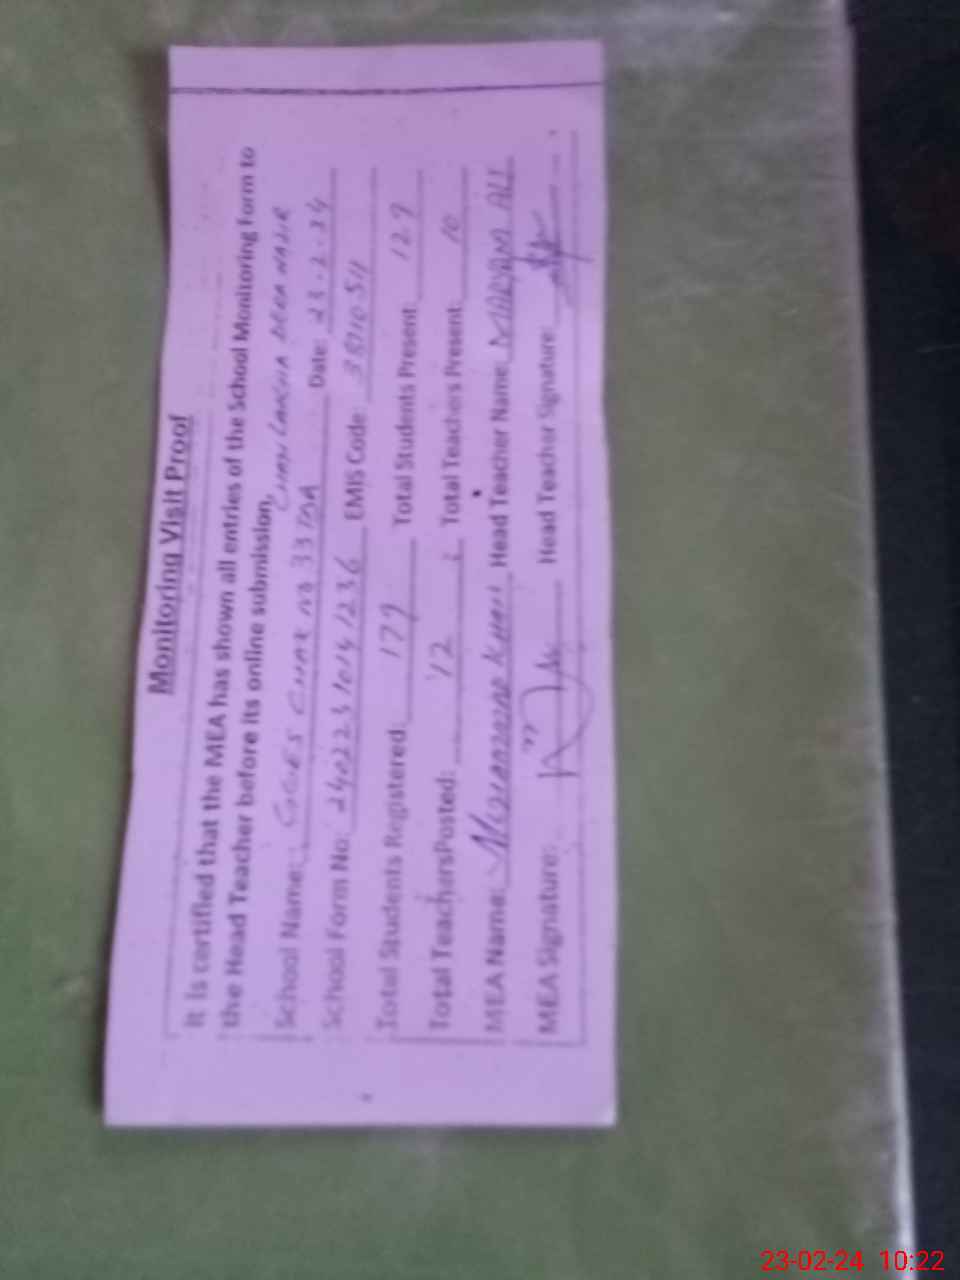 Monitoring Visit Proof
It is certified that the MEA has shown all entries of the School Monitoring Form to
the Head Teacher before its online submission.
School Name: CHAK NO 33 Date: 23-2-24
School Form No: EMIS Code:
Total Students Registered: 179 Total Students Present: 129
Total TeachersPosted: 12 Total Teachers Present: 10
MEA Name: MUHAMMAD KHAN Head Teacher Name: MARYAM ALI
MEA Signature: Head Teacher Signature:
23-02-24 10:22